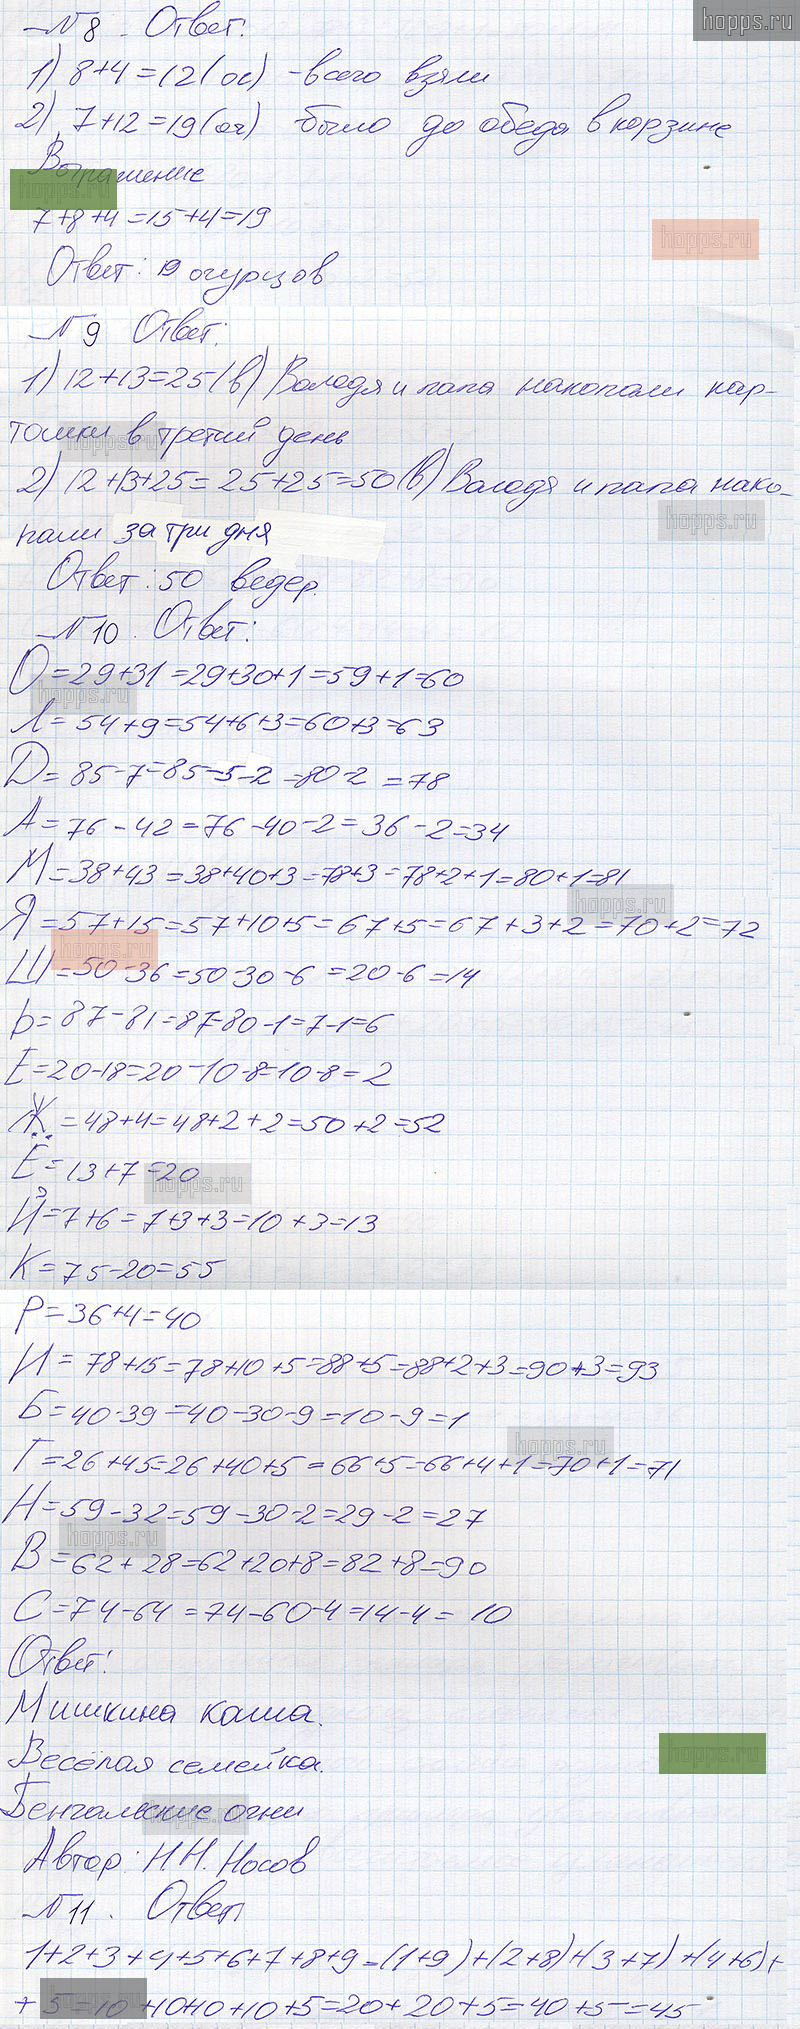 hopps.ru
№8. Ответ.
1) 8+4=12(ог) -всего взяли
2) 7+12=19(ог) было до обеда в корзине
Выражение
hopps.ru
7+8+4=15+4=19
hopps.ru
Ответ: 19 огурцов
№9 Ответ:
1) 12+13=25(в) Володя и папа накопали кар-
тошки в третий день
hopps.ru
2) 12+13+25=25+25=50(в) Володя и папа нако-
hopps.ru
пали за три дня
Ответ: 50 ведер.
№10. Ответ:
О=29+31=29+30+1=59+1=60
hopps.ru
Л=54+9=54+6+3=60+3=63
Д=85-7=85-5-2=80-2=78
А=76-42=76-40-2=36-2=34
М=38+43=38+40+3=78+3=78+2+1=80+1=81
hopps.ru
Я=57+15=57+10+5=67+5=67+3+2=70+2=72
hopps.ru
Ш=50-36=50-30-6=20-6=14
Ь=87-81=87-80-1=7-1=6
Е=20-18=20-10-8=10-8=2
Ж=48+4=48+2+2=50+2=52
Ё=13+7=20
hopps.ru
Й=7+6=7+3+3=10+3=13
К=75-20=55
Р=36+4=40
И=78+15=78+10+5=88+5=88+2+3=90+3=93
Б=40-39=40-30-9=10-9=1
hopps.ru
Г=26+45=26+40+5=66+5=66+4+1=70+1=71
Н=59-32=59-30-2=29-2=27
hopps.ru
В=62+28=62+20+8=82+8=90
С=74-64=74-60-4=14-4=10
Ответ:
Мишкина каша.
Весёлая семейка.
hopps.ru
Бенгальские огни
hopps.ru
Автор: Н.Н. Носов
№11. Ответ
1+2+3+4+5+6+7+8+9=(1+9)+(2+8)+(3+7)+(4+6)+
+5=10+10+10+10+5=20+20+5=40+5=45
hopps.ru